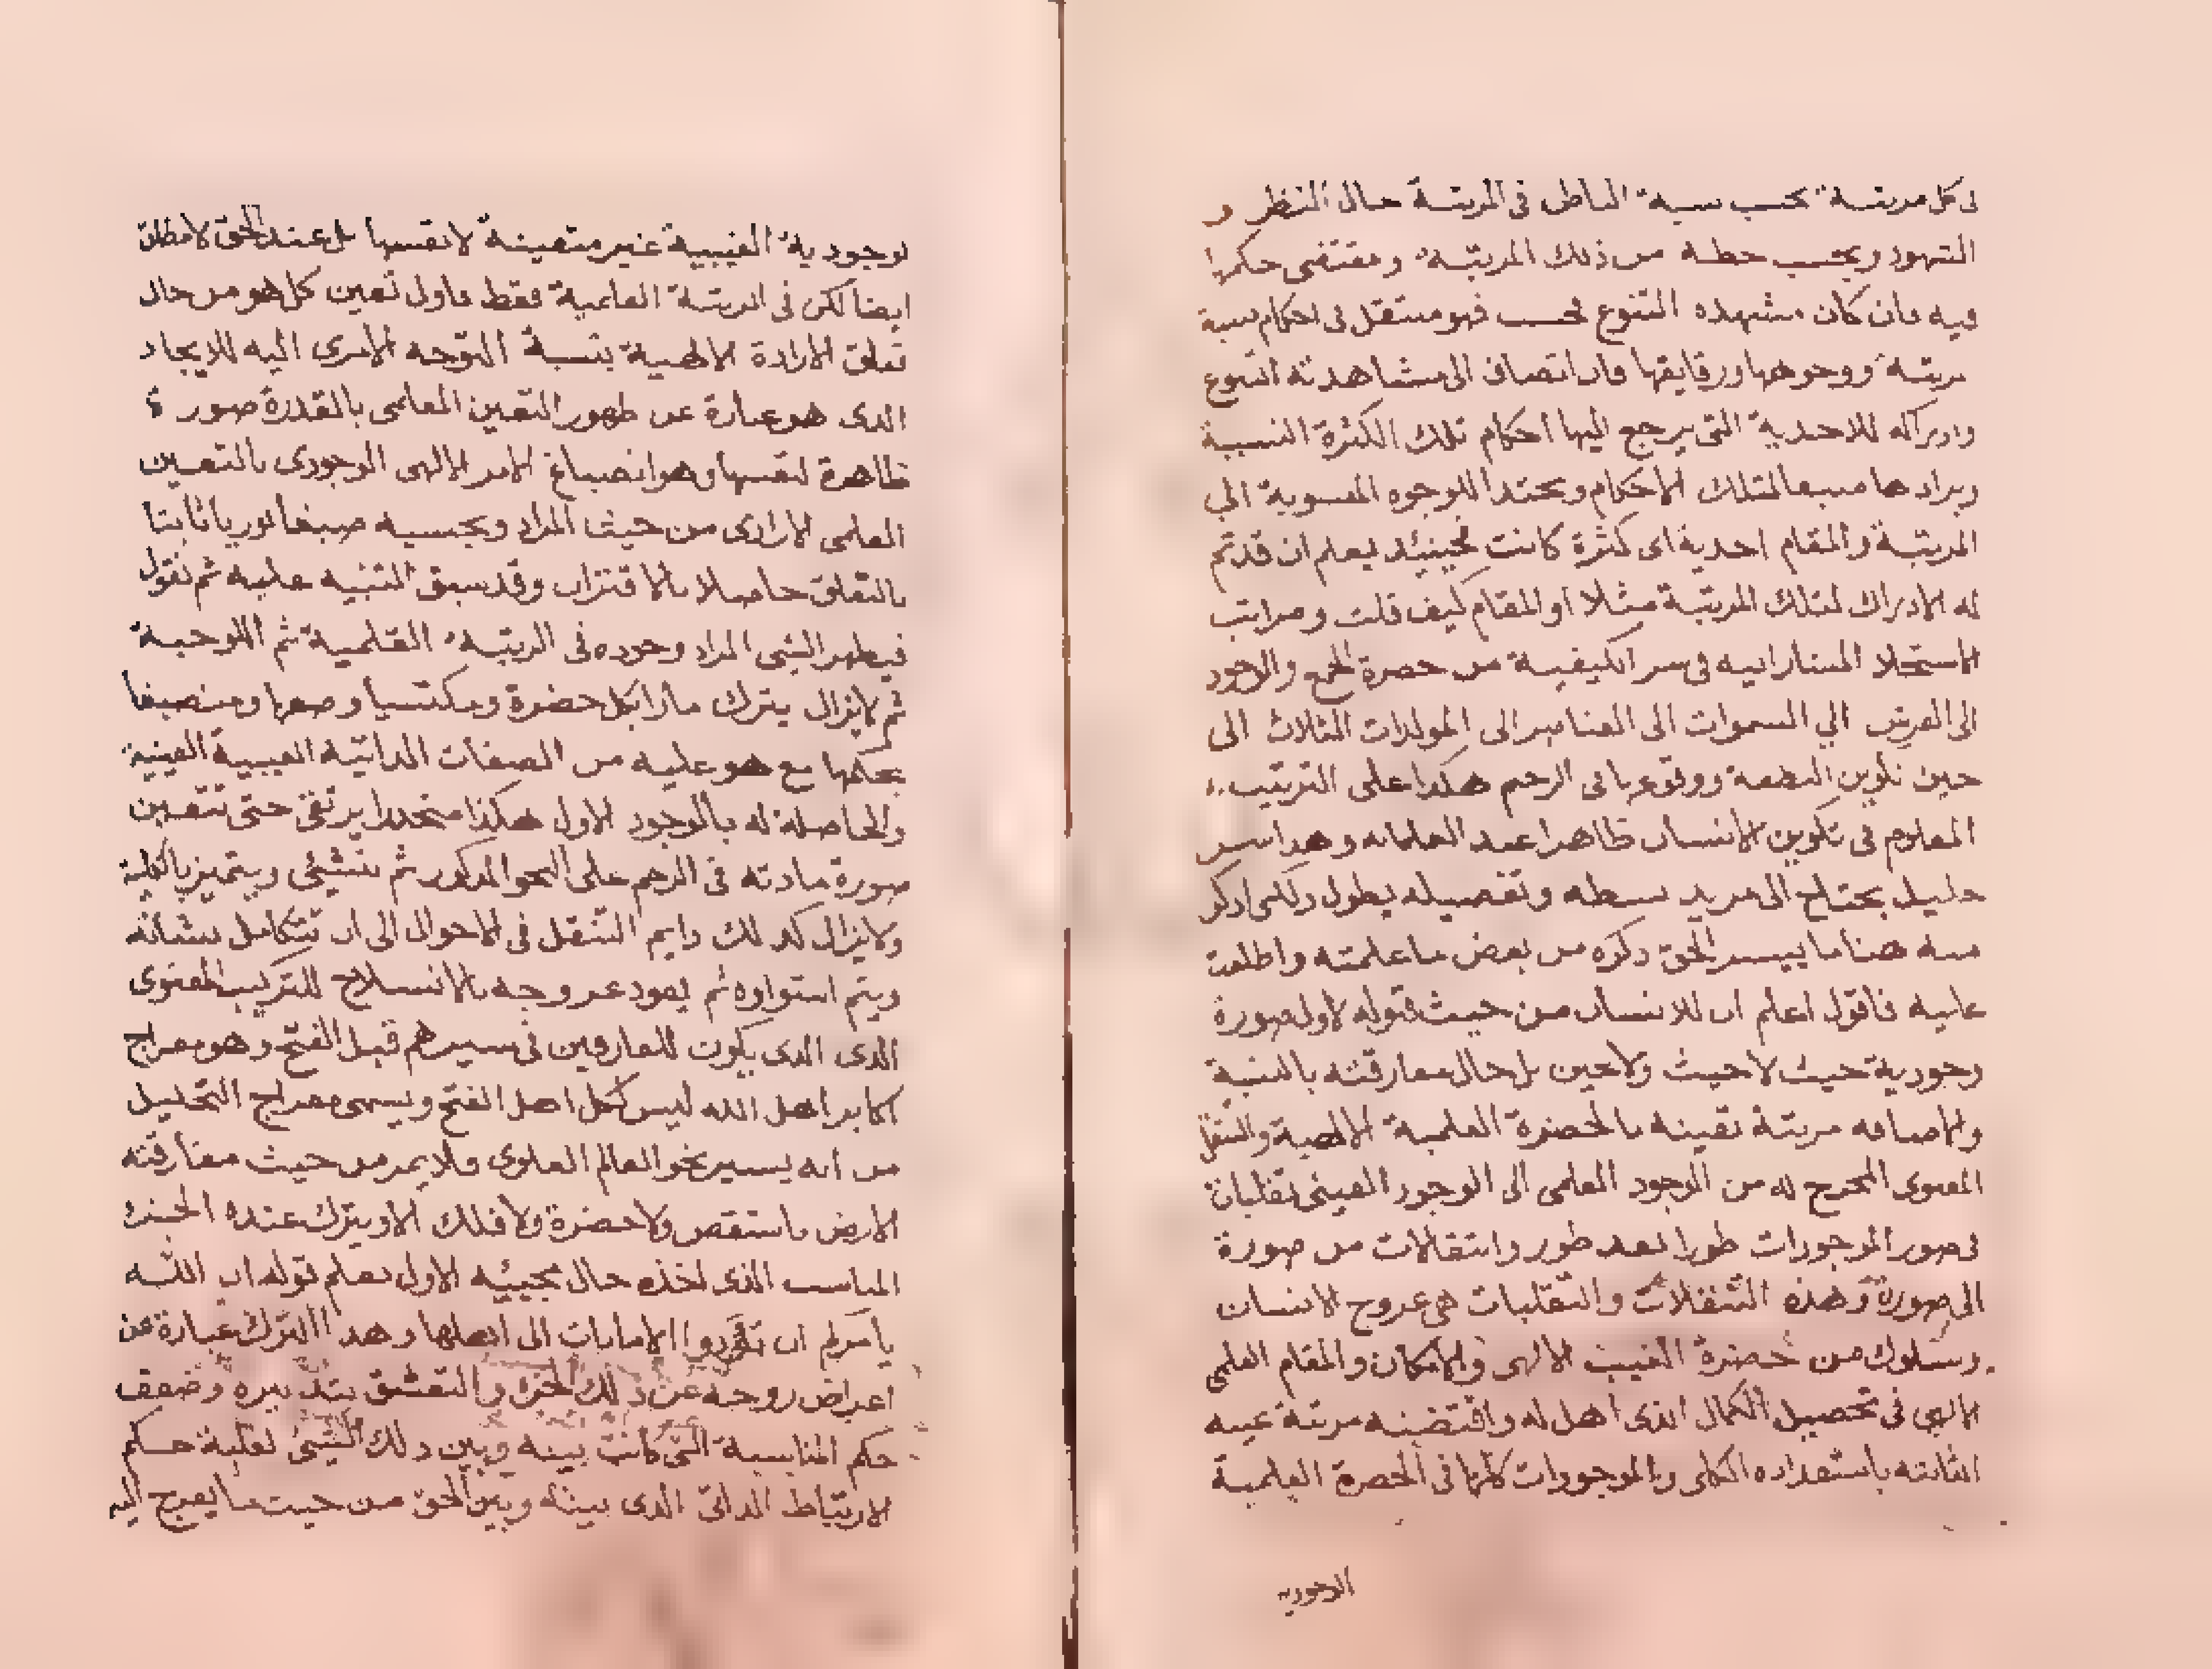 في كل مرتبة بحسب نسبة الباطن في المرتبة حال النظر و
الشهود وبحسب حظه من ذلك المرتبة ومقتضى حكمها
فيه فان كان مشهده التنوع فحسب فهو مستقل في احكام نسبة
مرتبة ووجوهها ورقايقها فان انضاف الى مشاهدته التنوع
وادراكه للاحدية التي يرجع اليها احكام تلك الكثرة النسبية
ويراد ها منبعا لتلك الاحكام ومحتدا للوجوه المنسوبة الي
المرتبة والمقام احدية اى كثرة كانت فحينئذ يعلم ان قد تم
له الادراك لتلك المرتبة مثلا او المقام كيف قلت ومراتب
الاستجلا المشار اليه في سر الكيفية من حضرة الجمع والوجود
الى العرش الي السموات الى العناصر الى المولدات الثلاث الى
حين تكوين النطفة ووقوعها في الرحم هكذا على الترتيب
المعلوم في تكوين الانسان ظاهرا عند العلماء وهذا سر
جليل يحتاج الى مزيد بسطه وتفصيله يطول ولكن اذكر
منه هنا ما ييسر الحق ذكره من بعض ما علمته واطلعت
عليه فاقول اعلم ان للانسان من حيث قبوله لاول صورة
وجودية حيث لا حيث ولا حين بل حال مفارقته بالنسبة
والاضافه مرتبة تعينه بالحضرة العلمية الالهية والتنقل
المعنوى المخرج له من الوجود العلمى الى الوجود العينى تقلبات
في صور الموجودات طورا بعد طور وانتقالات من صورة
الى صورة وهذه التنقلات والتقلبات هي عروج الانسان
وسلوك من حضرة الغيب الالهى والامكان والمقام العلمى
الالهي في تحصيل الكمال الذى اهل له واقتضته مرتبة عينه
الثابته باستعداده الكلى والموجودات كلها في الحضرة العلمية
الوجوديه
لوجودية الغيبية غير متعينة لانفسها بل عند الحق لا مطلق
ايضا لكن في المرتبة العلمية فقط فاول تعين كل هو من حال
تعلق الارادة الالهية بنسبة التوجه الامرى اليه للايجاد
الذى هو عبارة عن ظهور التعين العلمى بالقدرة صورة
ظاهرة لنفسها وهو انصباغ الامر الالهى الوجودى بالتعين
العلمى الارادى من حيث المراد وبحسبه صبغا نوريا ثابتا
بالتعلق حاصلا بالاقتران وقد سبق التنبيه عليه ثم نقول
فيظهر الشى المراد وجوده في المرتبة القلمية ثم اللوحية
ثم لا يزال ينزل مارا بكل حضرة ومكتسبا وصفها ومنصبغا
بحكمها مع هو عليه من الصفات الذاتية الغيبية العينية
والحاصلة له بالوجود الاول هكذا منحدرا يرتقى حتى تتعين
صورة مادته في الرحم على النحو المذكور ثم ينشئ ويتميز بالكلية
ولا يزال كذلك دايم التنقل في الاحوال الى ان تتكامل نشأته
ويتم استواوه ثم يعود عروجه بالانسلاخ للتركيب المعنوى
الذى الذى يكون للعارفين في سيرهم قبل الفتح وهو معراج
اكابر اهل الله ليس كل اهل الفتح ويسمى معراج التحليل
من انه يسير نحو العالم العلوى فلا يمر من حيث مفارقته
الارض باستقص ولا حضرة ولا فلك الا ويترك عنده الجزء
المناسب الذى اخذه حال مجيئه الاول بعلم قوله ان الله
يأمركم ان تؤدوا الامانات الى اهلها وهذا الترك عبارة عن
اعراض روحه عن ذلك الجزء والتعشق بتدبيره وضعف
حكم المناسبة التى كانت بينه وبين ذلك الشئ لغلبة حكم
الارتباط الذاتى الذى بينه وبين الحق من حيث ما يعرج اليه